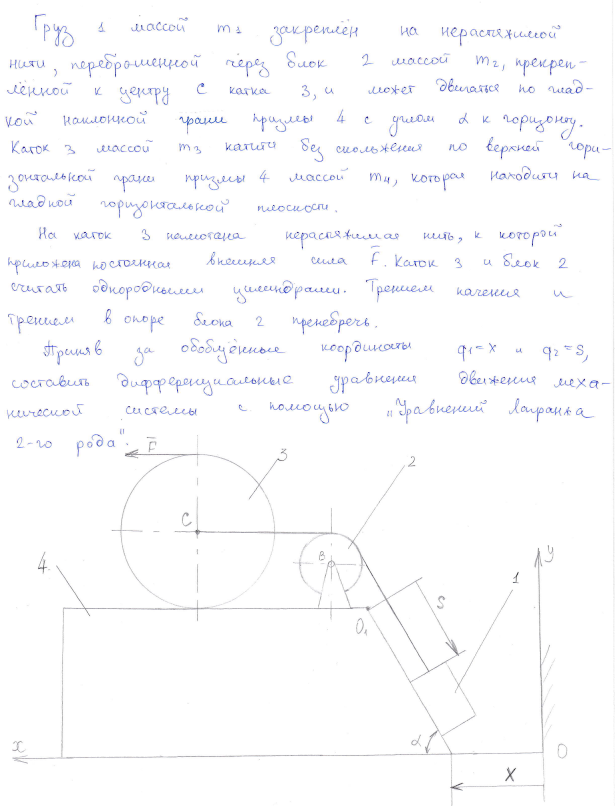 Груз 1 массой m1 закреплён на нерастяжимой
нити, переброшенной через блок 2 массой m2, прекреп-
лённой к центру С катка 3, и может двигаться по глад-
кой наклонной грани призмы 4 с углом α к горизонту.
Каток 3 массой m3 катити без скольжения по верхней гори-
зонтальной грани призмы 4 массой m4, которая находити на
гладной горизонтальной плоскости.
На каток 3 намотана нерастяжимая нить, к которой
приложена постоянная внешняя сила F̄. Каток 3 и блок 2
считать однородными цилиндрами. Трением качения и
трением в опоре блока 2 пренебречь.
Приняв за обобщённые координаты q1=x и q2=S,
составить дифференциальные уравнения движения меха-
нической системы с помощью „Уравнений Лагранжа
2-го рода".
F̄
3
2
C
B
4
O1
S
1
y
α
x
O
X